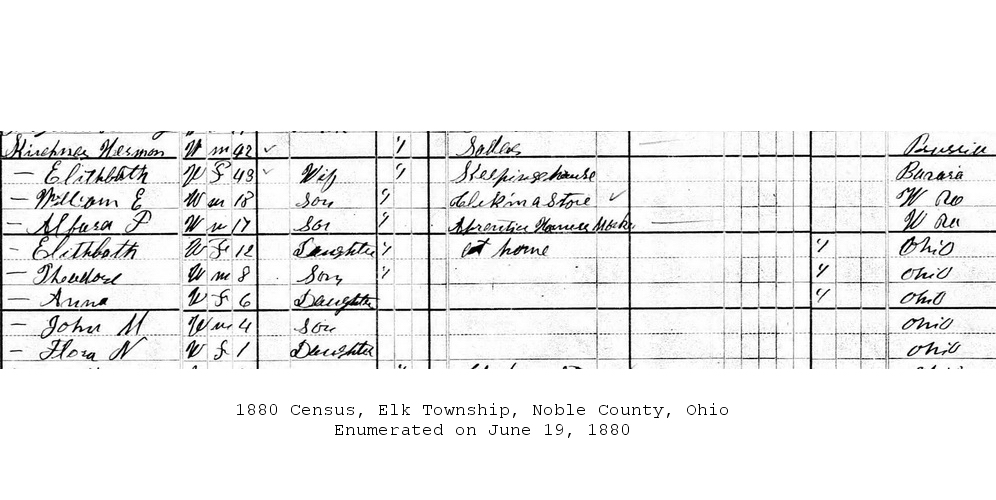 Kirchner Hermon W m 42 Sadler Prussia
— Elithbath W F 43 Wif Keeping house Bavaria
— William E W m 18 Son Clerk in a Store W Va
— W m 17 Son Aprentice Harness Maker W Va
— Elithbath W F 12 Daughter at home Ohio
— Theadore W m 8 Son Ohio
— Anna W F 6 Daughter Ohio
— John M W m 4 Son Ohio
— Flora N W F 1 Daughter Ohio
1880 Census, Elk Township, Noble County, Ohio
Enumerated on June 19, 1880